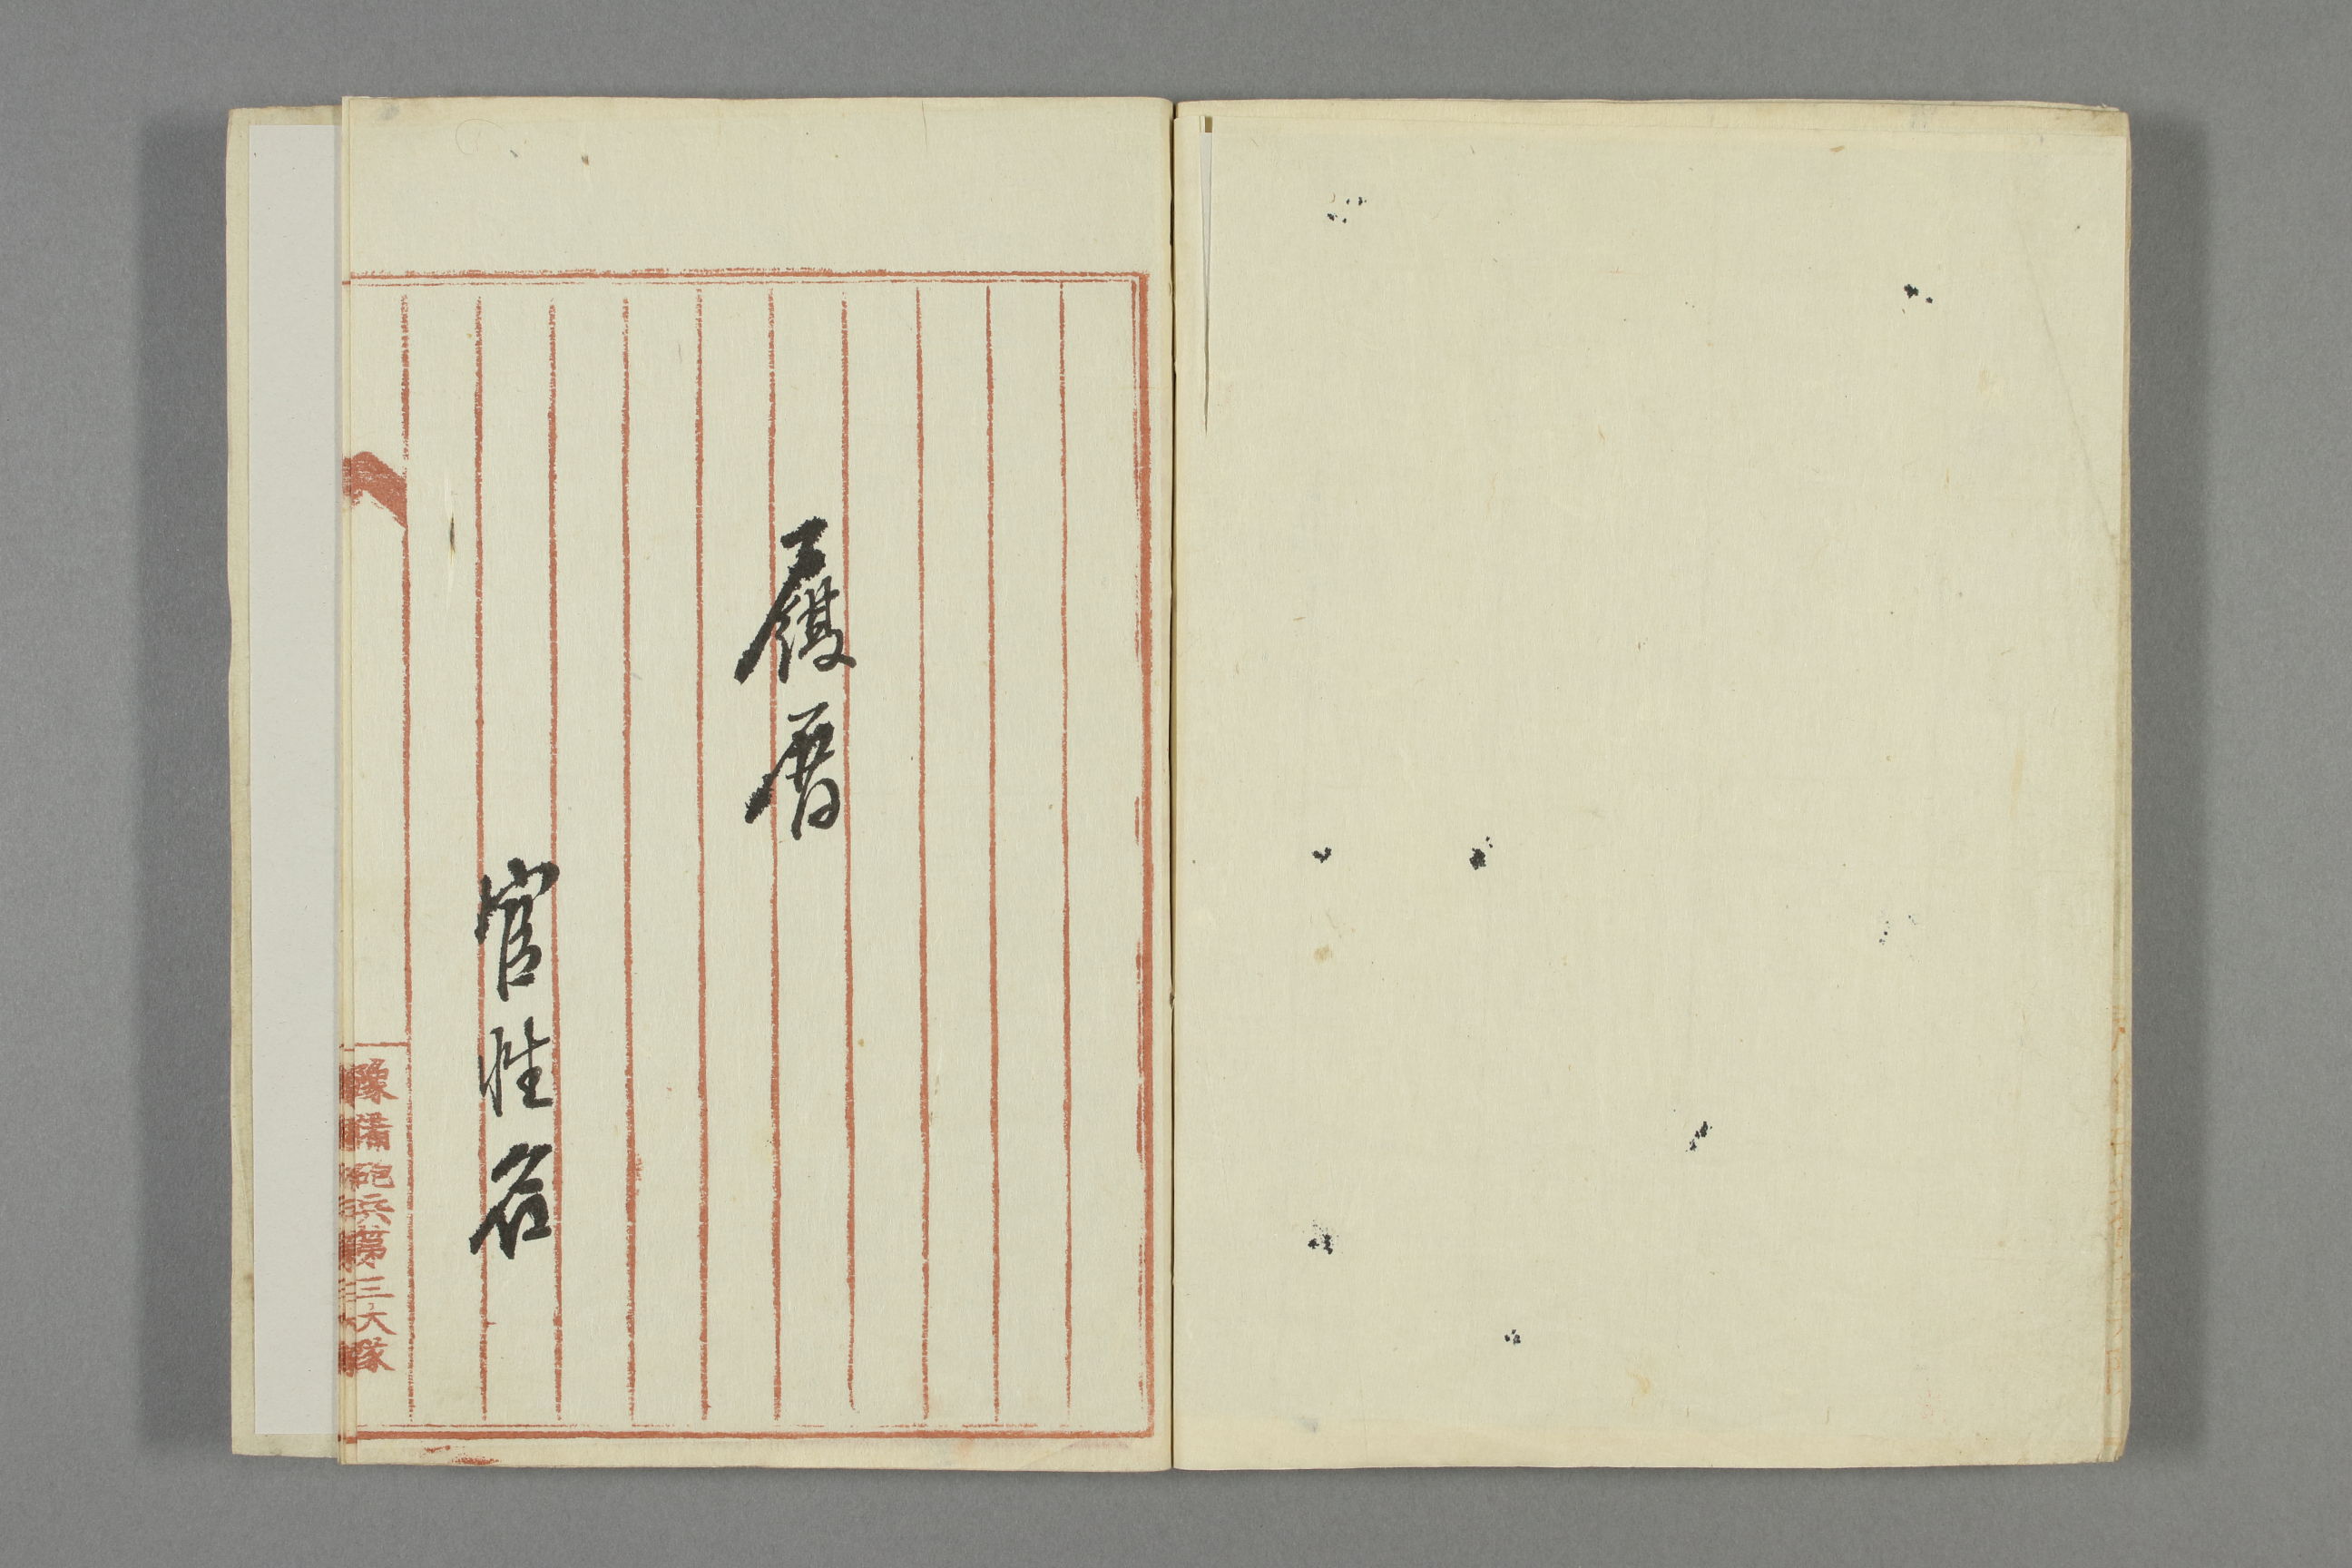 履暦
官性名
豫備砲兵第三大隊